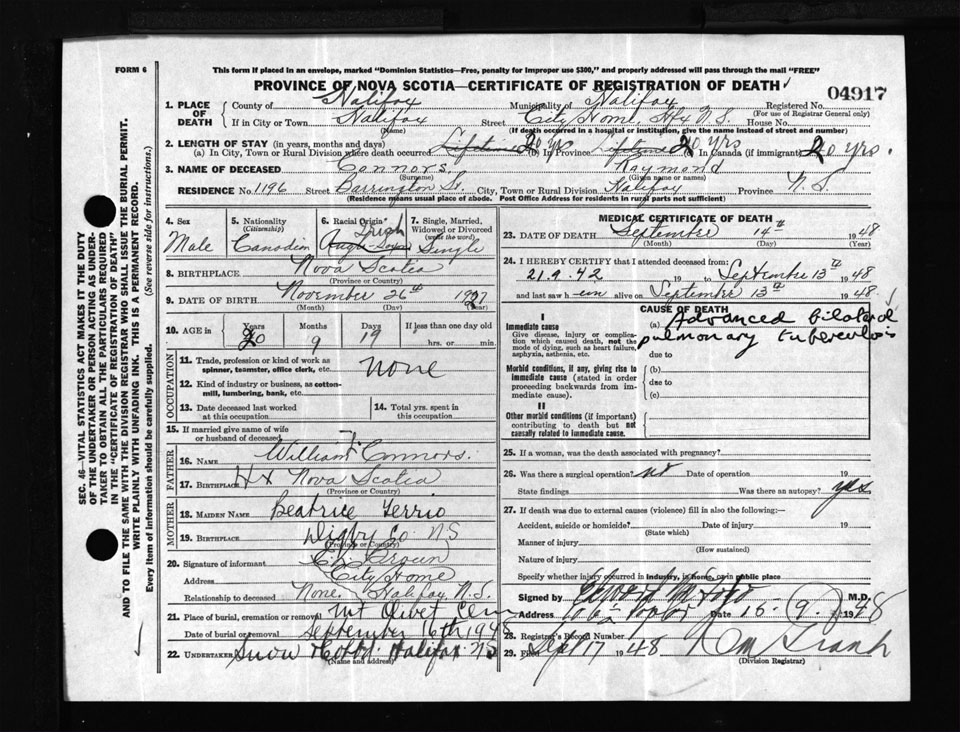 FORM 6
This form if placed in an envelope, marked "Dominion Statistics—Free, penalty for improper use $300," and properly addressed will pass through the mail "FREE"
PROVINCE OF NOVA SCOTIA—CERTIFICATE OF REGISTRATION OF DEATH
04917
1. PLACE OF DEATH County of Halifax Municipality of Halifax Registered No.
(For use of Registrar General only)
If in City or Town Halifax Street City Home Hfx N.S. House No.
(Name) (If death occurred in a hospital or institution, give the name instead of street and number)
2. LENGTH OF STAY (in years, months and days)
(a) In City, Town or Rural Division where death occurred Lifetime 20 yrs In Province Lifetime 20 yrs In Canada (if immigrant) 20 yrs.
3. NAME OF DECEASED Connors Raymond
(Surname) (Given name or names)
RESIDENCE No. 1196 Street Barrington St. City, Town or Rural Division Halifax Province N.S.
(Residence means usual place of abode. Post Office Address for residents in rural parts not sufficient)
4. Sex Male
5. Nationality (Citizenship) Canadian
6. Racial Origin Irish Anglo-Saxon
7. Single, Married, Widowed or Divorced (write the word) Single
8. BIRTHPLACE Nova Scotia
(Province or Country)
9. DATE OF BIRTH November 26th 1927
(Month) (Day) (Year)
10. AGE in Years 20 Months 9 Days 19 If less than one day old
hrs. or min.
OCCUPATION
11. Trade, profession or kind of work as spinner, teamster, office clerk, etc. None
12. Kind of industry or business, as cotton-mill, lumbering, bank, etc.
13. Date deceased last worked at this occupation
14. Total yrs. spent in this occupation
15. If married give name of wife or husband of deceased
FATHER
16. NAME William Connors.
17. BIRTHPLACE Hx Nova Scotia
(Province or Country)
MOTHER
18. MAIDEN NAME Beatrice Terrio
19. BIRTHPLACE Digby Co NS
(Province or Country)
20. Signature of informant
Address City Home
Relationship to deceased None. Halifax, N.S.
21. Place of burial, cremation or removal Mt Olivet Cem
Date of burial or removal September 16th 1948
22. UNDERTAKER Snow Halifax NS
(Name and address)
MEDICAL CERTIFICATE OF DEATH
23. DATE OF DEATH September 14th 1948
(Month) (Day) (Year)
24. I HEREBY CERTIFY that I attended deceased from:
21.9.42 19 to September 13th 1948
and last saw h im alive on September 13th 1948
CAUSE OF DEATH
I
Immediate cause
Give disease, injury or complication which caused death, not the mode of dying, such as heart failure, asphyxia, asthenia, etc.
(a) Advanced bilateral
pulmonary tuberculosis
due to
Morbid conditions, if any, giving rise to immediate cause (stated in order proceeding backwards from immediate cause).
(b)
due to
(c)
II
Other morbid conditions (if important) contributing to death but not causally related to immediate cause.
25. If a woman, was the death associated with pregnancy?
26. Was there a surgical operation? no Date of operation 19
State findings Was there an autopsy? yes
27. If death was due to external causes (violence) fill in also the following:—
Accident, suicide or homicide? Date of injury 19
(State which)
Manner of injury
(How sustained)
Nature of injury
Specify whether injury occurred in industry, in home, or in public place
Signed by M.D.
Address Date 15-9-1948
28. Registrar's Record Number
29. Filed Sept 17 1948
(Division Registrar)
SEC. 46—VITAL STATISTICS ACT MAKES IT THE DUTY
OF THE UNDERTAKER OR PERSON ACTING AS UNDER-
TAKER TO OBTAIN ALL THE PARTICULARS REQUIRED
IN THE "CERTIFICATE OF REGISTRATION OF DEATH"
AND TO FILE THE SAME WITH THE DIVISION REGISTRAR WHO SHALL ISSUE THE BURIAL PERMIT.
WRITE PLAINLY WITH UNFADING INK. THIS IS A PERMANENT RECORD.
Every item of information should be carefully supplied. (See reverse side for instructions.)